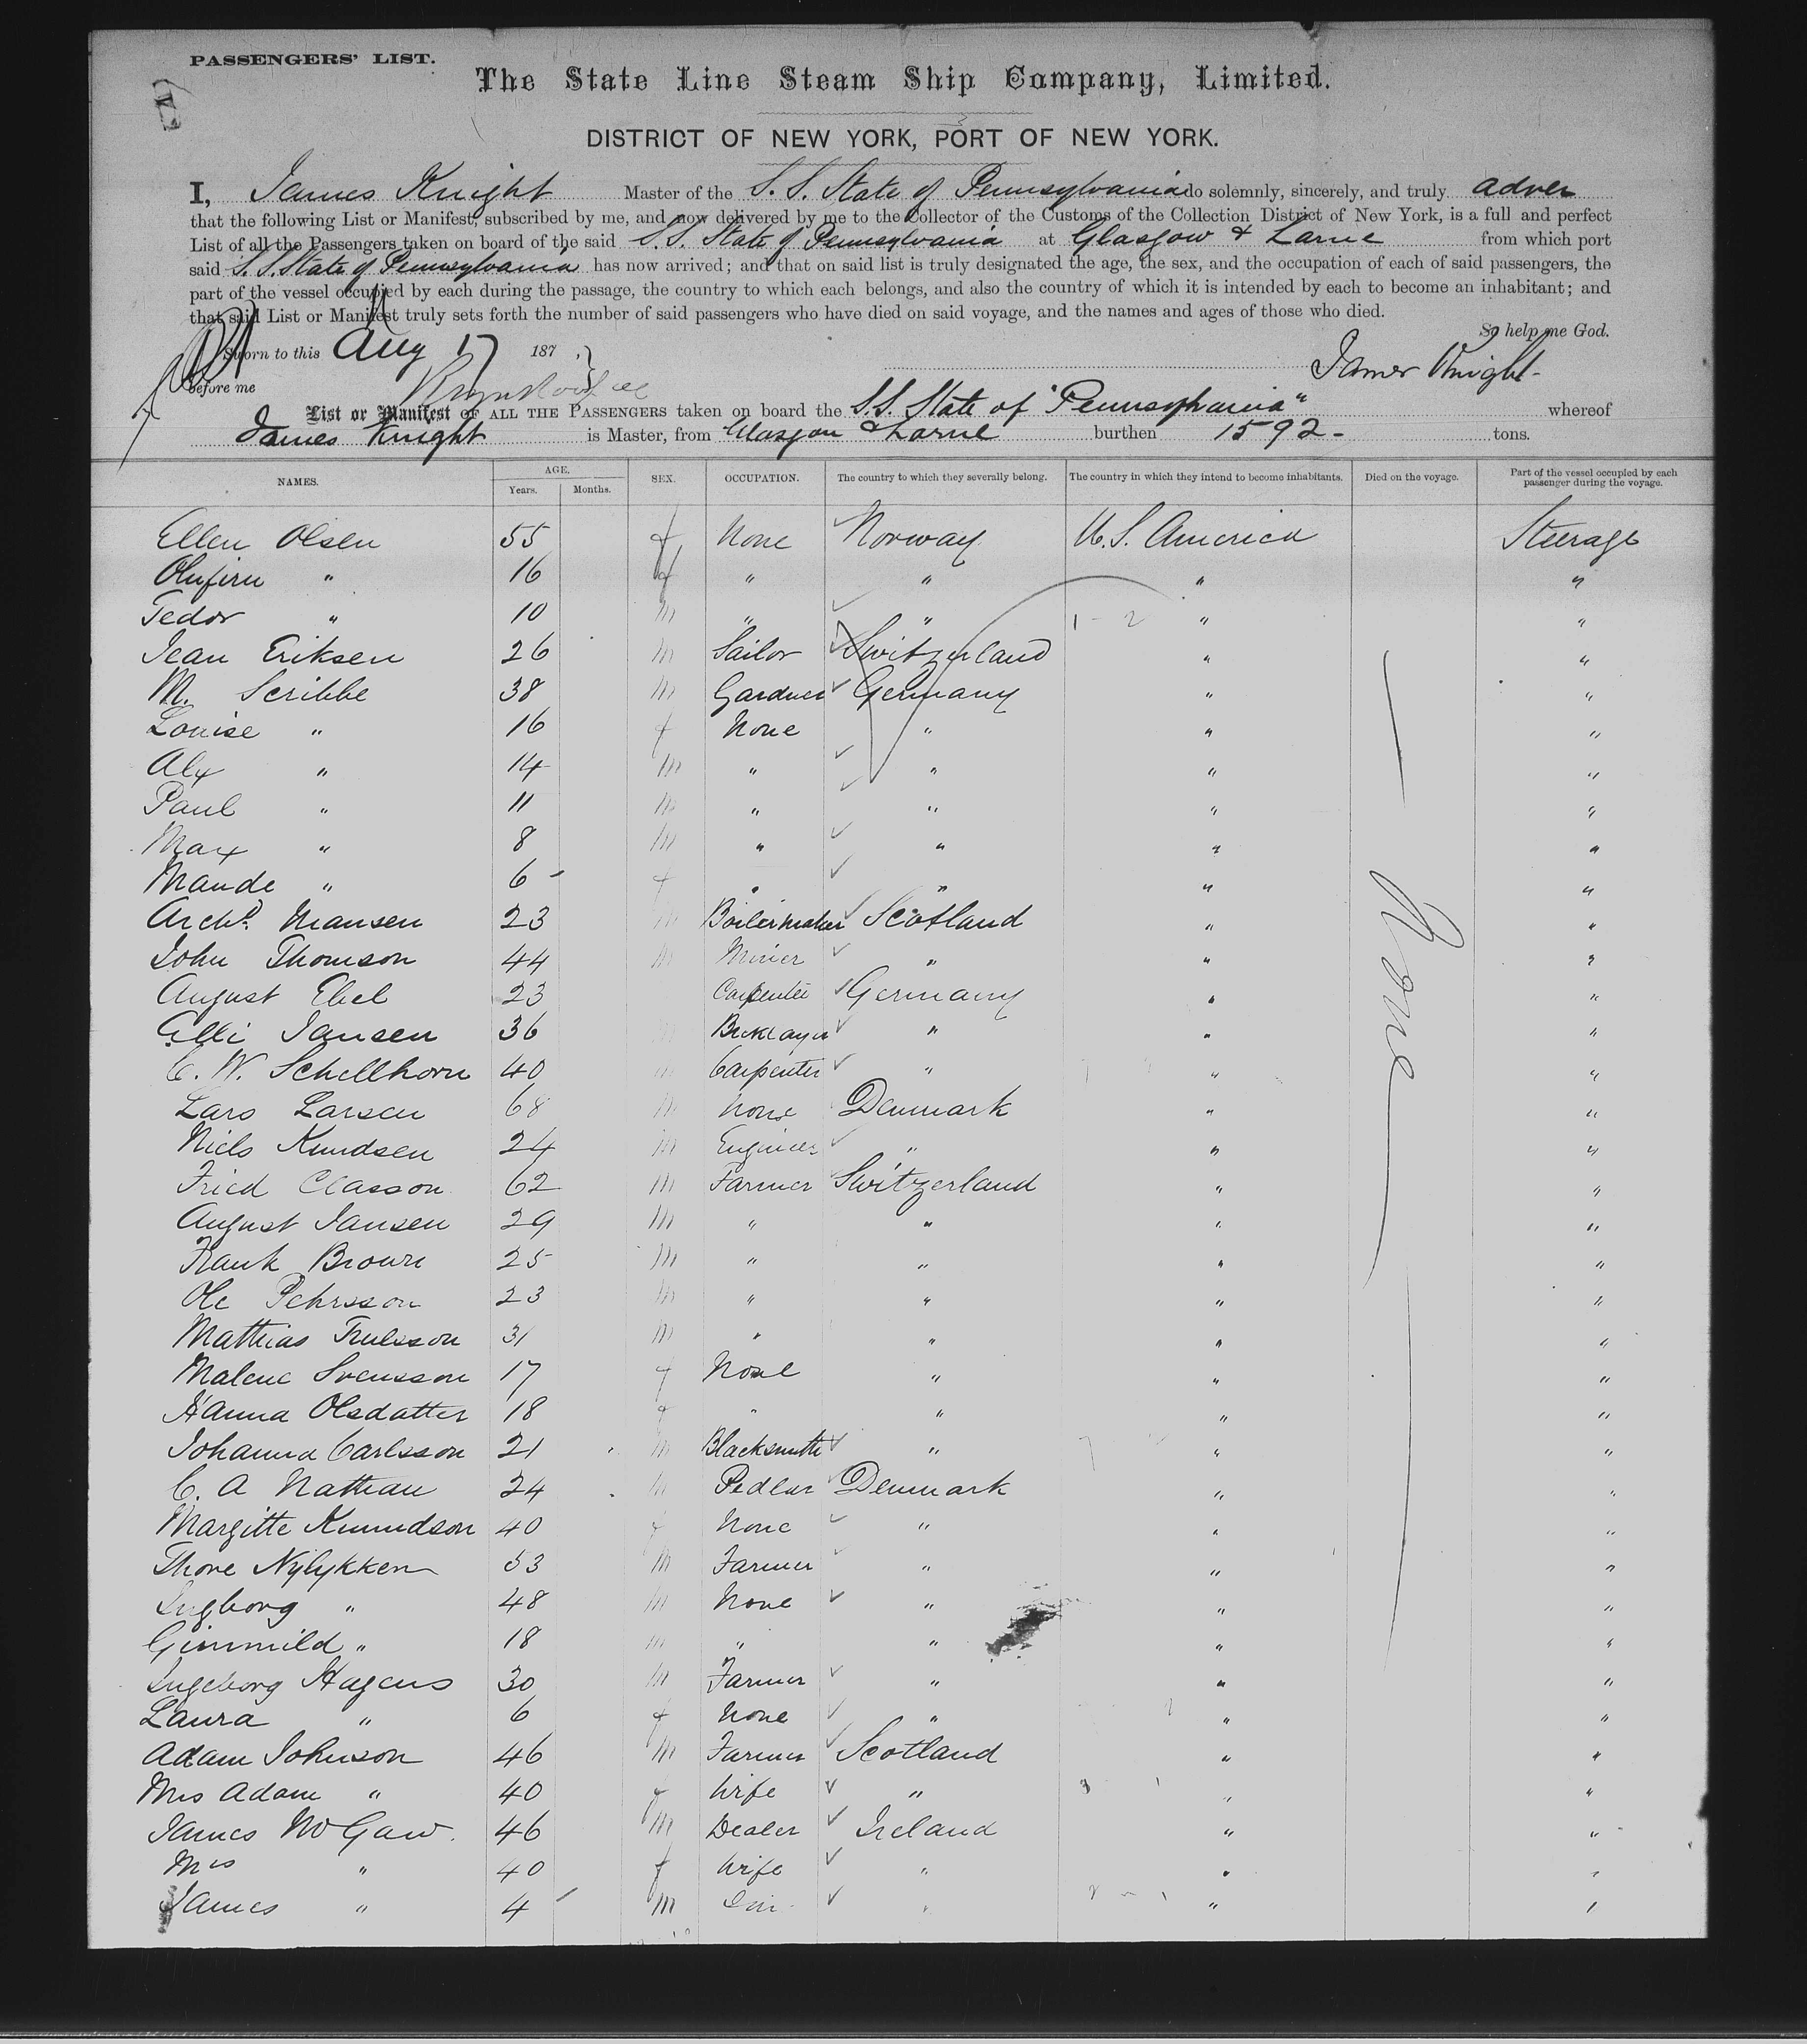 PASSENGERS' LIST.
The State Line Steam Ship Company, Limited.
DISTRICT OF NEW YORK, PORT OF NEW YORK.
I, James Knight Master of the S. S. State of Pennsylvania do solemnly, sincerely, and truly
that the following List or Manifest, subscribed by me, and now delivered by me to the Collector of the Customs of the Collection District of New York, is a full and perfect
List of all the Passengers taken on board of the said S. S. State of Pennsylvania at Glasgow & Larne from which port
said S. S. State of Pennsylvania has now arrived; and that on said list is truly designated the age, the sex, and the occupation of each of said passengers, the
part of the vessel occupied by each during the passage, the country to which each belongs, and also the country of which it is intended by each to become an inhabitant; and
that said List or Manifest truly sets forth the number of said passengers who have died on said voyage, and the names and ages of those who died.
So help me God.
Sworn to this Aug 17 187 , James Knight
before me
List or Manifest OF ALL THE PASSENGERS taken on board the S.S. State of "Pennsylvania" whereof
James Knight is Master, from Glasgow & Larne burthen 1592 - tons.
NAMES. AGE. Years. Months. SEX. OCCUPATION. The country to which they severally belong. The country in which they intend to become inhabitants. Died on the voyage. Part of the vessel occupied by each passenger during the voyage.
Ellen Olsen 55 f None Norway U. S. America Steerage
" 16 f " " " "
Tedor " 10 m " " " "
Jean Eriksen 26 m Sailor Switzerland " "
M. Scribbe 38 m Gardner Germany " "
Louise " 16 f None " " "
Alx " 14 m " " " "
Paul " 11 m " " " "
Max " 8 m " " " "
Maude " 6 f " " " "
Archd. Mansen 23 m Boilermaker Scotland " "
John Thomson 44 m Miner " " "
August Ebel 23 Carpenter Germany " "
Jansen 36 Bricklayer " " "
C. W. Schellhorn 40 m Carpenter " " "
Lars Larsen 68 m None Denmark " "
Niels Knudsen 24 m Engineer " " "
Fried Classon 62 m Farmer Switzerland " "
August Jansen 29 m " " " "
Frank Brown 25 m " " " "
Ole Pehrsson 23 m " " " "
Mathias Trulsson 31 m " " " "
Malene Svensson 17 f None " " "
Hanna Olsdatter 18 f " " " "
Johanna Carlsson 21 m Blacksmith " " "
C. A Nathan 24 m Pedlar Denmark " "
Margitte Knundson 40 f None " " "
Thore Nylykken 53 m Farmer " " "
Ingborg " 48 m None " " "
" 18 m " " " "
Ingeborg Hagens 30 m Farmer " " "
Laura " 6 f None " " "
Adam Johnson 46 m Farmer Scotland " "
Mrs Adam " 40 f Wife " " "
James McGaw. 46 m Dealer Ireland " "
Mrs " 40 f Wife " " "
James " 4 m " " "
None